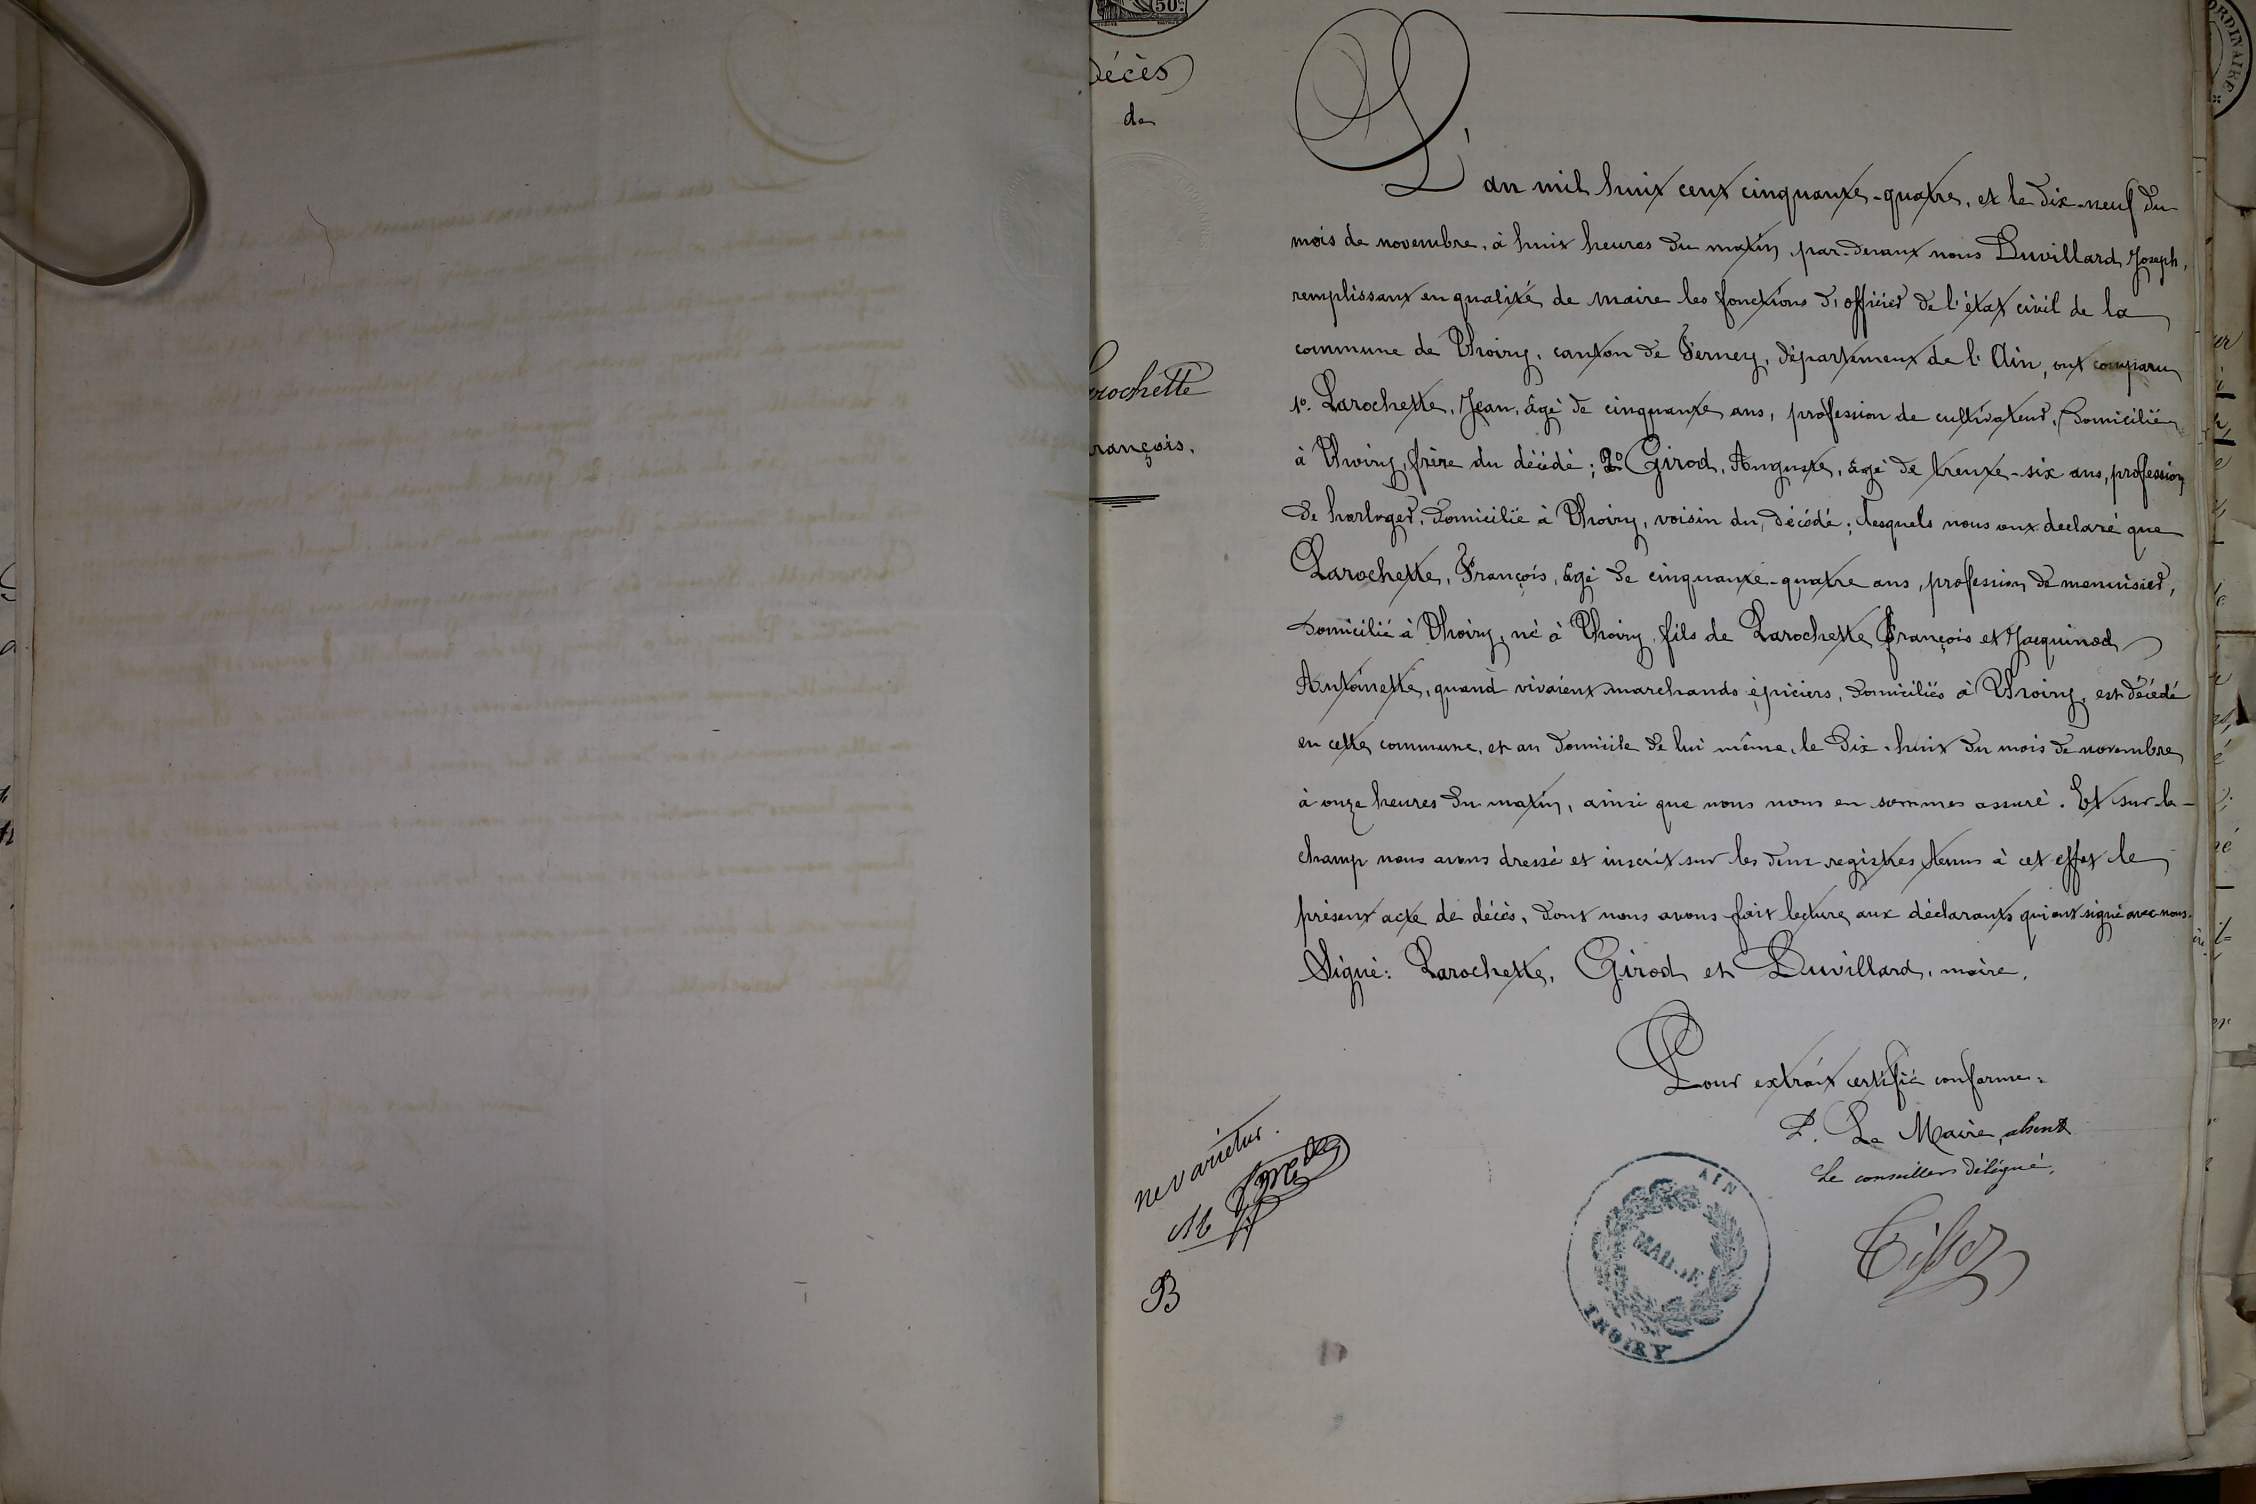 50c
Décès
de
Larochette
François.
L'an mil huit cent cinquante-quatre, et le dix-neuf du
mois de novembre, à huit heures du matin, par-devant nous Duvillard, Joseph,
remplissant en qualité de maire les fonctions d'officier de l'état civil de la
commune de Thoiry, canton de Ferney, département de l'Ain, ont comparu
1º. Larochette, Jean, âgé de cinquante ans, profession de cultivateur, domicilié
à Thoiry, frère du décédé; 2º Girod, Auguste, âgé de trente-six ans, profession
de horloger, domicilié à Thoiry, voisin du décédé; lesquels nous ont declaré que
Larochette, François, âgé de cinquante-quatre ans, profession de menuisier,
domicilié à Thoiry, né à Thoiry, fils de Larochette François et Jacquinod
Antoinette, quand vivaient marchands épiciers, domiciliés à Thoiry, est décédé
en cette commune, et au domicile de lui même, le dix-huit du mois de novembre
à onze heures du matin, ainsi que nous nous en sommes assuré. Et sur-le-
champ nous avons dressé et inscrit sur les deux registres tenus à cet effet le
présent acte de décès, dont nous avons fait lecture aux déclarants qui ont signé avec nous.
Signé: Larochette, Girod et Duvillard, maire.
Pour extrait certifié conforme:
P. Le Maire, absent
Le conseiller délégué,
Tissot
ne varietur.
B
AIN
MAIRIE
THOIRY
ORDINAIRE